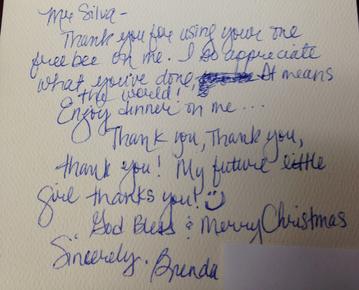 Mr. Silva -
Thank you for using your one
free bee on me. I do appreciate
what you've done, It means
the world!
Enjoy dinner on me...
Thank you, Thank you,
thank you! My future little
girl thanks you!
God Bless & Merry Christmas
Sincerely, Brenda